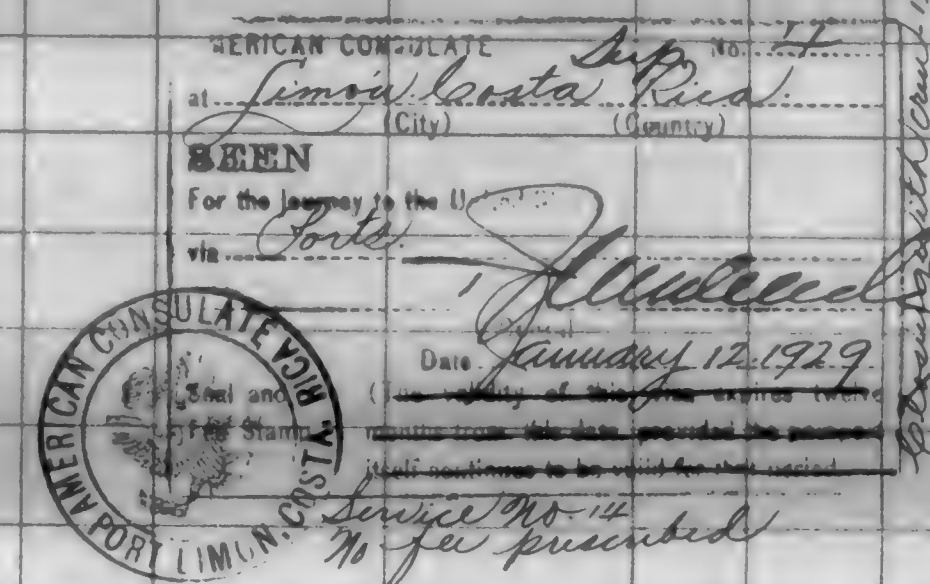 MERICAN CONSULATE Sup No. 4
at Limón Costa Rica.
(City) (Country)
SEEN
For the journey to the U
via Ports.
Date January 12-1929
Seal and (The validity of this visa expires twelve
Fee Stamp months from this date provided the passport
itself continues to be valid for that period
Service No. 14
No fee prescribed
AMERICAN CONSULATE
PORT LIMON, COSTA RICA